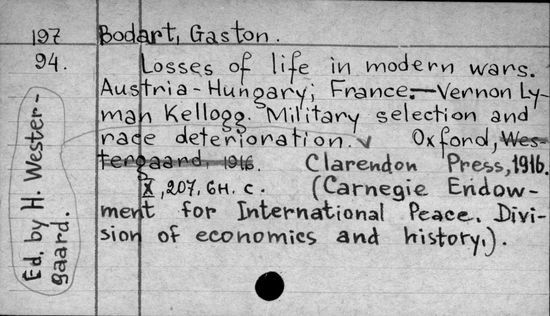 197 Bodart, Gaston.
94. Losses of life in modern wars.
Austria-Hungary; France.—Vernon Ly-
man Kellogg. Military selection and
race deterioration. Oxford, Wes-
tergaard, 1916. Clarendon Press, 1916.
X, 207, 6H. c. (Carnegie Endow-
ment for International Peace. Divi-
sion of economics and history.).
Ed. by H. Wester-
gaard.